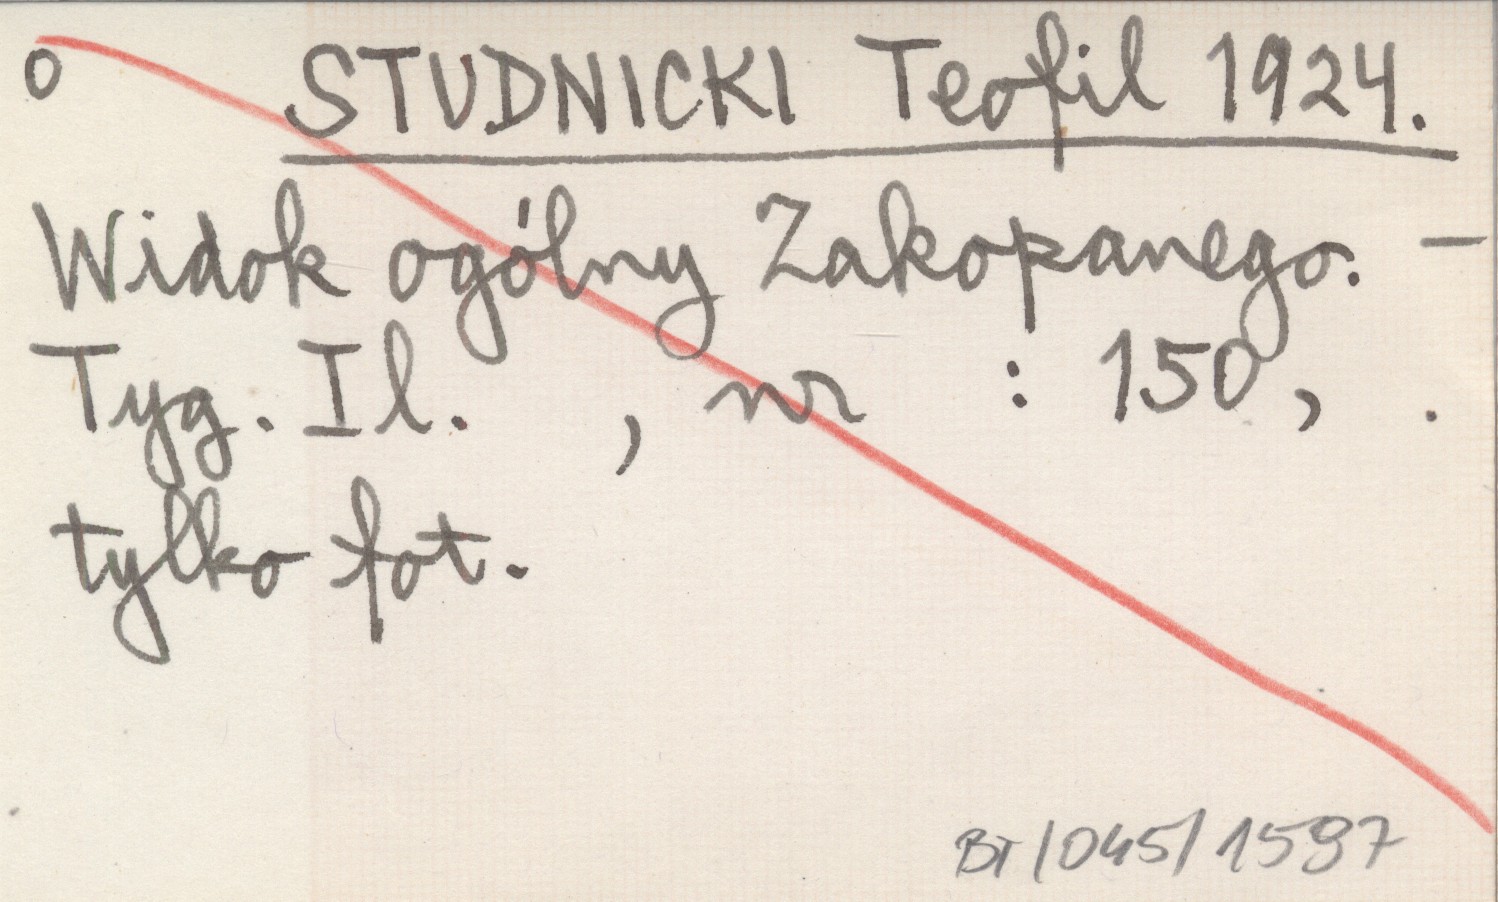 o STUDNICKI Teofil 1924.
Widok ogólny Zakopanego. —
Tyg. Il. , nr : 150, .
tylko fot.
BT/045/1597